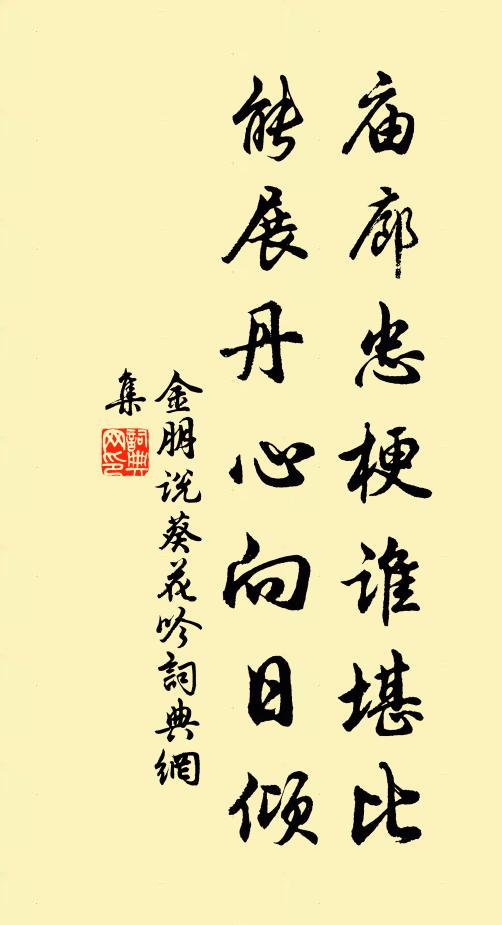 庙廊忠梗谁堪比
能展丹心向日倾
金朋说葵花吟詞典網
集
詞典
网印